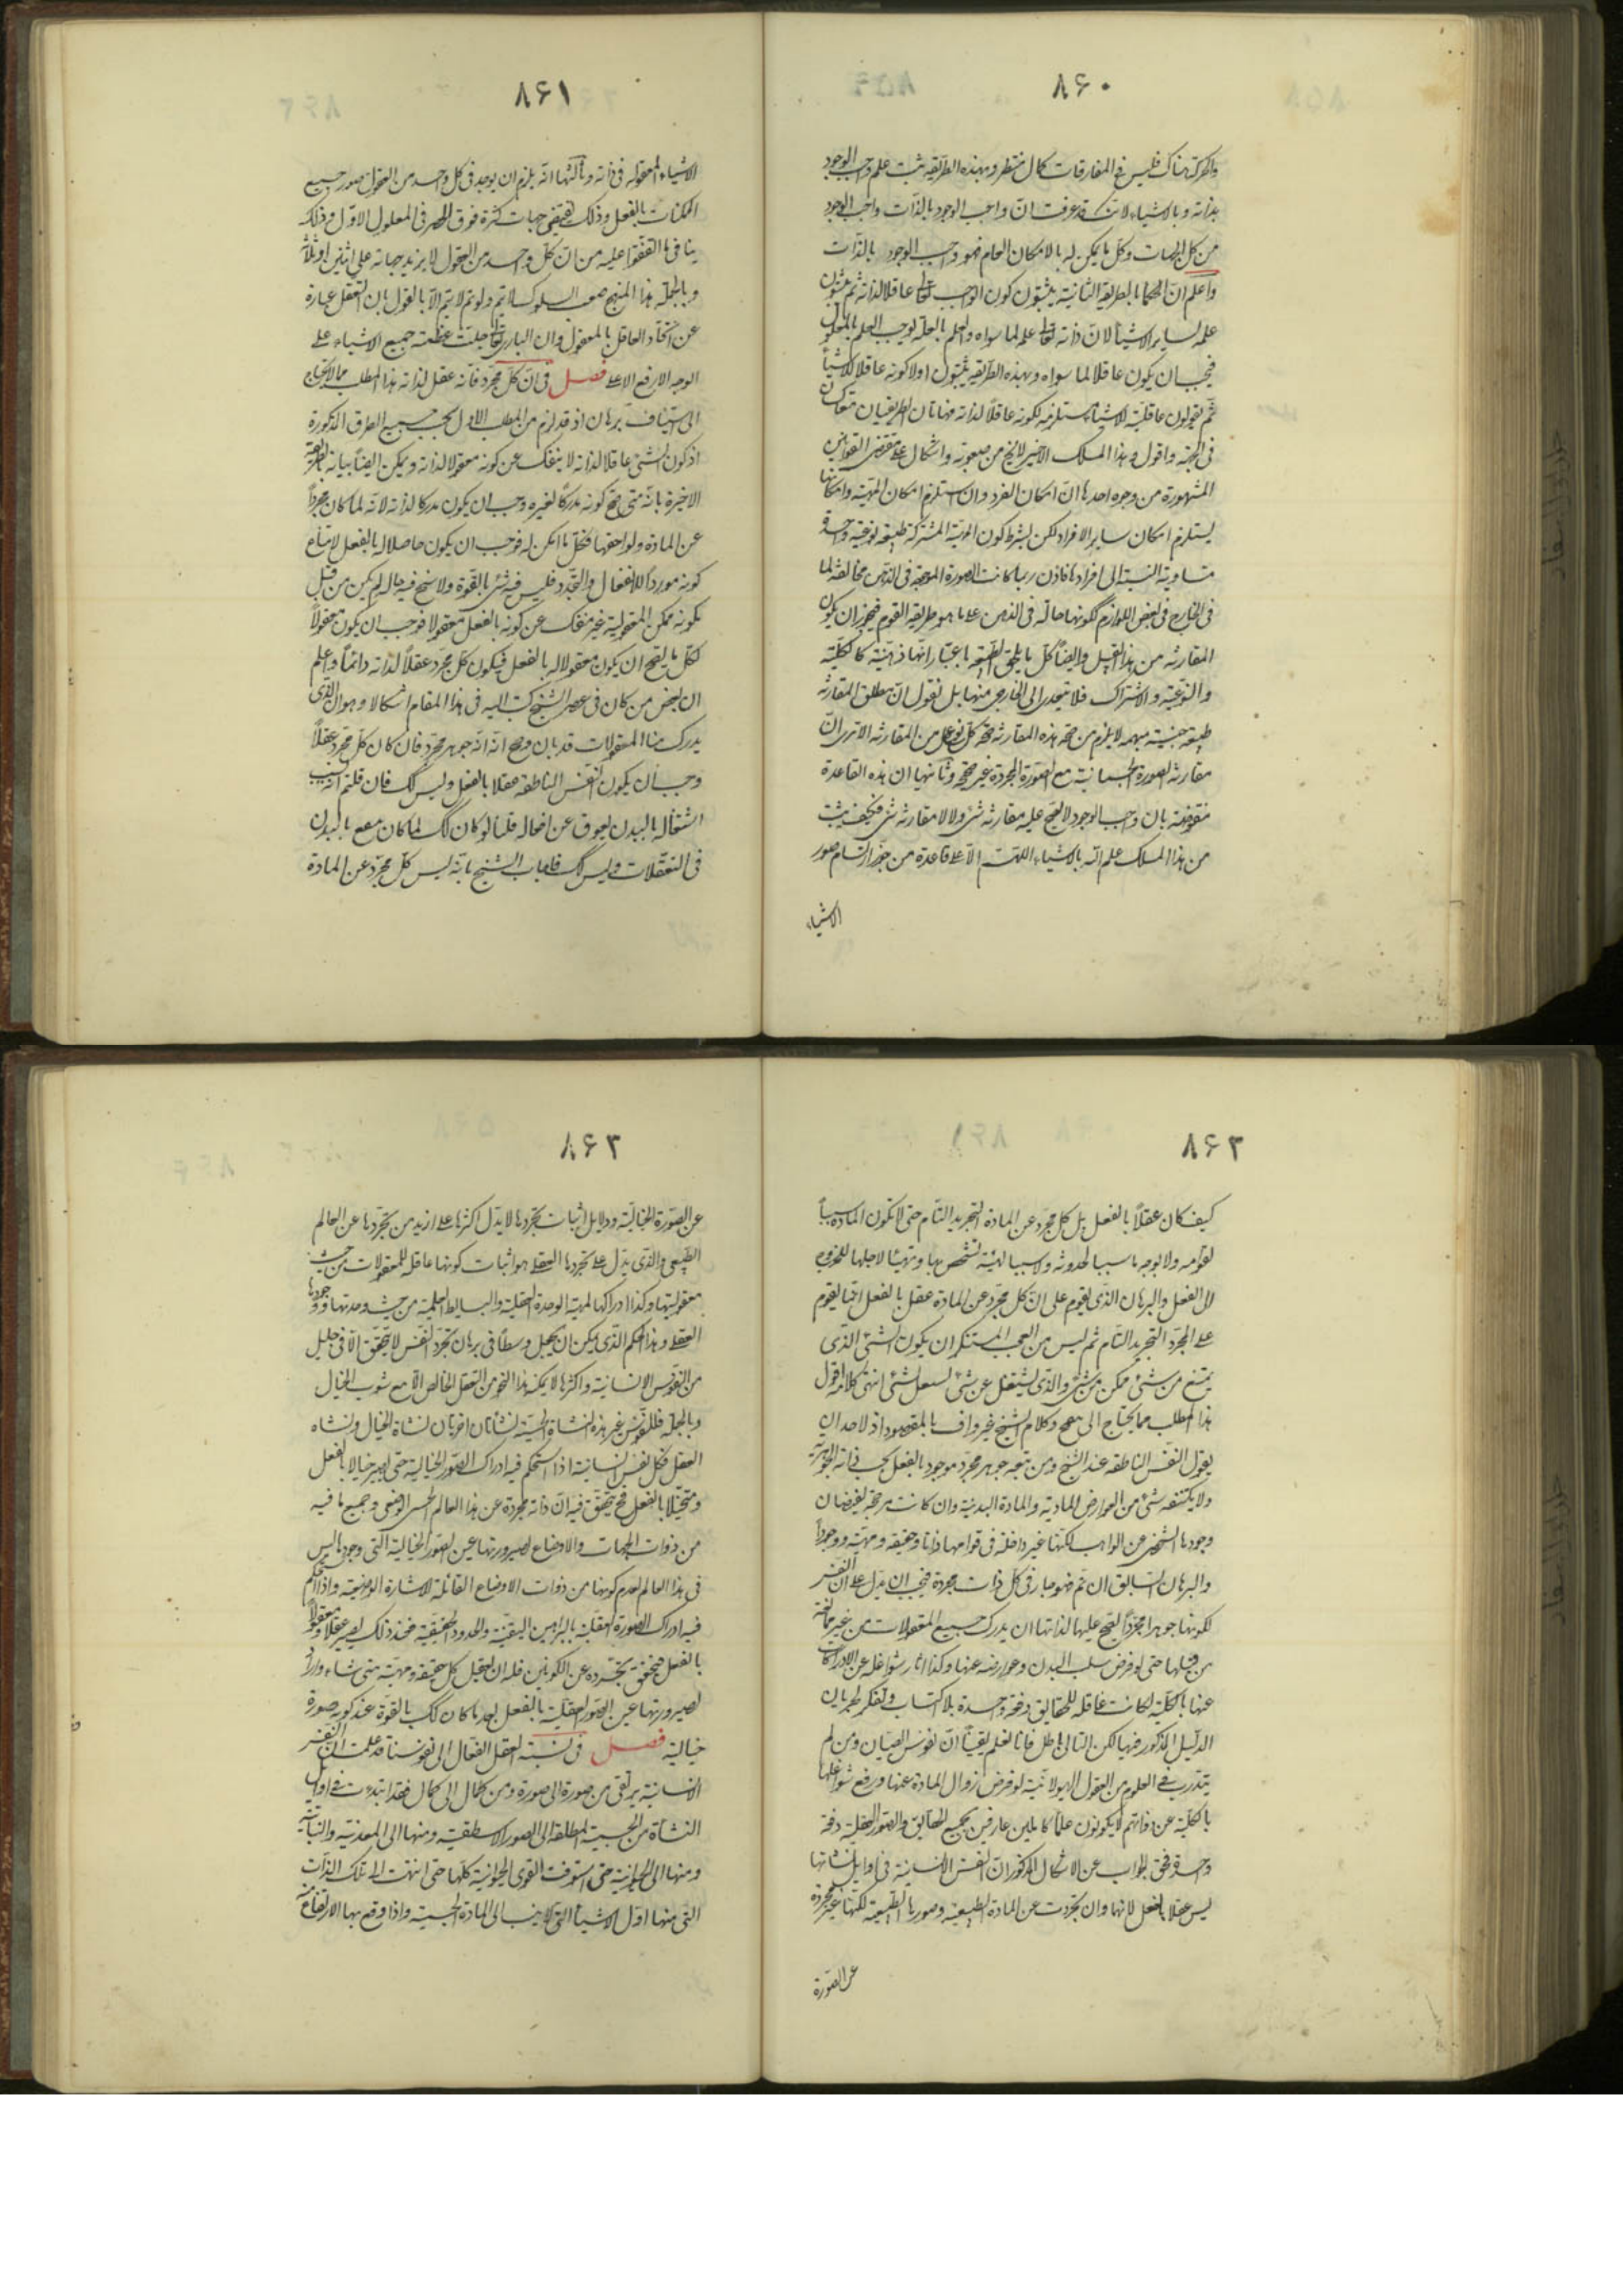 ٨۶٠
والحركة هناك فليس فى المفارقات كمال منتظر وبهذه الطريقة يثبت علم واجب الوجود
بذاته وبالاشياء لانك قد عرفت ان واجب الوجود بالذات واجب الوجود
من كل الجهات وكل ما يمكن له بالامكان العام فهو واجب الوجود بالذات
واعلم ان الحكما بالطريقة الثانية يثبتون كون الواجب تعالى عاقلا لذاته ثم يثبتون
علمه بساير الاشيا لان ذاته تعالى علة لما سواه والعلم بالعلة يوجب العلم بالمعلول
فيجب ان يكون عاقلا لما سواه وبهذه الطريقة يثبتون اولا كونه عاقلا للاشيا
ثم يقولون عاقليته للاشيا مستلزمة لكونه عاقلا لذاته فهاتان الطريقتان متعاكستان
فى الجهة واقول وهذا المسلك الاخير لا يخ من صعوبة واشكال على مقتضى القوانين
المشهورة من وجوه احدها ان امكان الفرد وان استلزم امكان المهية وامكانها
يستلزم امكان ساير الافراد لكن بشرط كون المهية المشتركة طبيعة نوعية واحدة
متساوية النسبة الى افرادها فاذن ربما كانت الصورة الموجودة فى الذهن مخالفة لما
فى الخارج فى بعض اللوازم ككونها حالة فى الذهن على ما هو طريقة القوم فيجوز ان يكون
المقارنة من هذا القبيل وايضا كل ما يلحق الطبيعة باعتبار انها ذهنية كالكلية
والنوعية والاشتراك فلا تتعدى الى الخارجى منها بل نقول ان مطلق المقارنة
طبيعة جنسية مبهمة لا يلزم من صحة هذه المقارنة صحة كل نوع من المقارنة الا ترى ان
مقارنة الصورة الجسمانية مع الصورة المجردة غير صحيح وثانيها ان هذه القاعدة
منقوضة بان واجب الوجود لا يصح عليه مقارنة شئ ولا لا مقارنة شئ فكيف يثبت
من هذا المسلك علمه بالاشياء اللهم الا على قاعدة من جوز ارتسام صور
الاشياء
٨۶١
الاشياء المعقولة فى ذاته وثالثها انه يلزم ان يوجد فى كل واحد من العقول صور جميع
الممكنات بالفعل وذلك يقتضى جهات كثرة فوق الحصر فى المعلول الاول وذلك
ينافى ما اتفقوا عليه من ان كل واحد من العقول لا يزيد جهاته على اثنين او ثلثة
وبالجملة هذا المنهج صعب السلوك لا يتم ولو تم لا يتم الا بالقول بان التعقل عبارة
عن اتحاد العاقل بالمعقول وان البارى تعالى جلت عظمته جميع الاشياء على
الوجه الارفع الاعلى فصل فى ان كل مجرد فانه عقل لذاته هذا المطلب مما لا يحتاج
الى استيناف برهان اذ قد لزم من المطلب الاول بحسب جميع الطرق المذكورة
اذ كون الشئ عاقلا لذاته لا ينفك عن كونه معقولا لذاته ويمكن ايضا بيانه بالطريقة
الاخيرة بانه متى صح كونه مدركا لغيره وجب ان يكون مدركا لذاته لانه لما كان مجردا
عن المادة ولواحقها فكل ما امكن له فوجب ان يكون حاصلا له بالفعل لامتناع
كونه موردا للانفعال والتجدد فليس فيه شئ بالقوة ولا سنخ فيه حاله لم يكن من قبل
لكونه ممكن المعقولية غير منفك عن كونه بالفعل معقولا فوجب ان يكون معقولا
لكل ما يصح ان يكون معقولا له بالفعل فيكون كل مجرد عقلا لذاته دائما واعلم
ان بعض من كان فى عصر الشيخ كتب اليه فى هذا المقام اشكالا وهو ان الذى
يدرك منا المعقولات قد بان وصح انه جوهر مجرد فان كان كل مجرد عقلا
وجب ان يكون النفس الناطقة عقلا بالفعل وليس كك فان قلتم انه بسبب
اشتغاله بالبدن يعوق عن افعاله قلنا لو كان كك لما كان ينتفع بالبدن
فى التعقلات وليس كك فاجاب الشيخ بانه ليس كل مجرد عن المادة
٨۶٢
كيف كان عقلا بالفعل بل كل مجرد عن المادة التجريد التام حتى لا تكون المادة سببا
لقوامه ولا بوجه ما سببا لحدوثه ولا سببا لهيئة يتشخص بها ويتهيئا لاجلها للخروج
الى الفعل والبرهان الذى يقوم على ان كل مجرد عن المادة عقل بالفعل انما يقوم
على المجرد التجريد التام ثم ليس من العجب المستنكر ان يكون الشئ الذى
يمنع من شئ يمكن من شئ والذى يشغل عن شئ يشغل بشئ انتهى كلامه اقول
هذا المطلب مما يحتاج الى وكلام الشيخ غير واف بالمقصود اذ لاحد ان
يقول النفس الناطقة عند الشيخ ومن تبعه جوهر مجرد موجود بالفعل بحسب ذاته الجوهرية
ولا يكتنفه شئ من العوارض المادية والمادة البدنية وان كانت مرجحة لفيضان
وجودها الشخصى عن الواهب لكنها غير داخلة فى قوامها ذاتا وحقيقة ومهية ووجودا
والبرهان السابق ان تم فهو جار فى كل ذات مجردة فيجب ان يدل على ان النفس
لكونها جوهرا مجردا يصح عليها لذاتها ان يدرك جميع المعقولات من غير مانعة
من قبلها حتى لو فرض سلب البدن وعوارضه عنها وكذا اثار شواغله عن الادراكات
عنها بالكلية لكانت عاقلة للحقايق دفعة واحدة بلا اكتساب وتفكر لجريان
الدليل المذكور فيها لكن التالى باطل فانا نعلم يقينا ان نفوس الصبيان ومن لم
يتدرب فى العلوم من العقول الهيولانية لو فرض زوال المادة عنها ورفع شواغلها
بالكلية عن ذواتهم لا يكونون علما كاملين عارفين بجميع الحقايق والصور العقلية دفعة
واحدة فحق الجواب عن الاشكال المذكور ان النفس الانسانية فى اوايل نشاتها
ليس عقلا بالفعل لانها وان تجردت عن المادة الطبيعية وصورها الطبيعية لكنها غير مجردة
عن الصورة
٨۶٣
عن الصورة الخيالية ودلايل اثبات تجردها لا يدل اكثرها على ازيد من تجردها عن العالم
الطبيعى والذى يدل على تجردها العقلى هو اثبات كونها عاقلة للمعقولات من حيث
معقوليتها وكذا ادراكها لمهية الوحدة العقلية والبسايط العلمية من حيث وحدتها ووجودها
العقلى وهذا الحكم الذى يمكن ان يجعل وسطا فى برهان تجرد النفس لا يتحقق الا فى قليل
من النفوس الانسانية واكثرها لا يمكنه هذا النحو من التعقل الخالص الا مع شوب الخيال
وبالجملة فللنفس غير هذه النشاة الحسية نشاتان اخريان نشاة الخيال ونشاه
العقل فكل نفس انسانية اذا استحكم فيه ادراك الصور الخيالية حتى يصير خيالا بالفعل
ومتخيلا بالفعل فح يتحقق فيه ان ذاته مجردة عن هذا العالم الحسى الوضعى وجميع ما فيه
من ذوات الجهات والاوضاع لصيرورتها عين الصور الخيالية التى وجودها ليس
فى هذا العالم لعدم كونها من ذوات الاوضاع القابلة للاشارة الوضعية واذا استحكم
فيه ادراك الصورة العقلية بالبراهين اليقينية والحدود الحقيقية فعند ذلك يصير عقلا ومعقولا
بالفعل فيتحقق تجرده عن الكونين فله ان يتعقل كل حقيقة ومهية متى شاء واراد
لصيرورتها عين الصور العقلية بالفعل بعد ما كان كك بالقوة عند كونه صورة
خيالية فصل فى نسبة العقل الفعال الى نفوسنا قد علمت ان النفس
الانسانية يرتقى من صورة الى صورة ومن كمال الى كمال فقد ابتدءت فى اوايل
النشاة من الجسمية المطلقة الى الصور الاسطقسية ومنها الى المعدنية والنباتية
ومنها الى الحيوانية حتى استوفت القوى الحيوانية كلها حتى انتهت الى تلك الذات
التى منها اول الاشيا التى لا ينسب الى المادة الجسمية واذا وقع بها الارتقاء منه